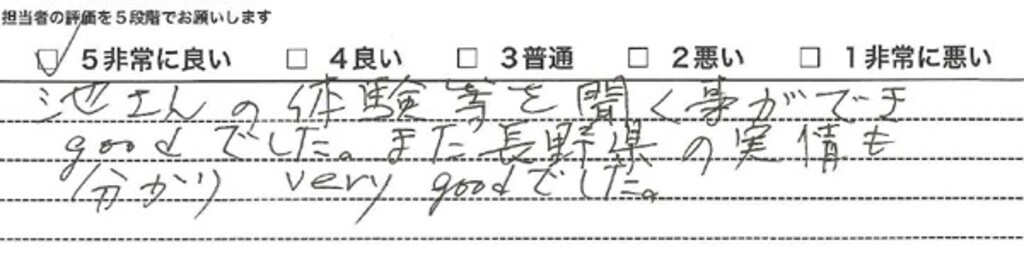 担当者の評価を5段階でお願いします
☑ 5非常に良い □ 4良い □ 3普通 □ 2悪い □ 1非常に悪い
池さんの体験等を聞く事ができ
goodでした。また長野県の実情も
分かり very goodでした。